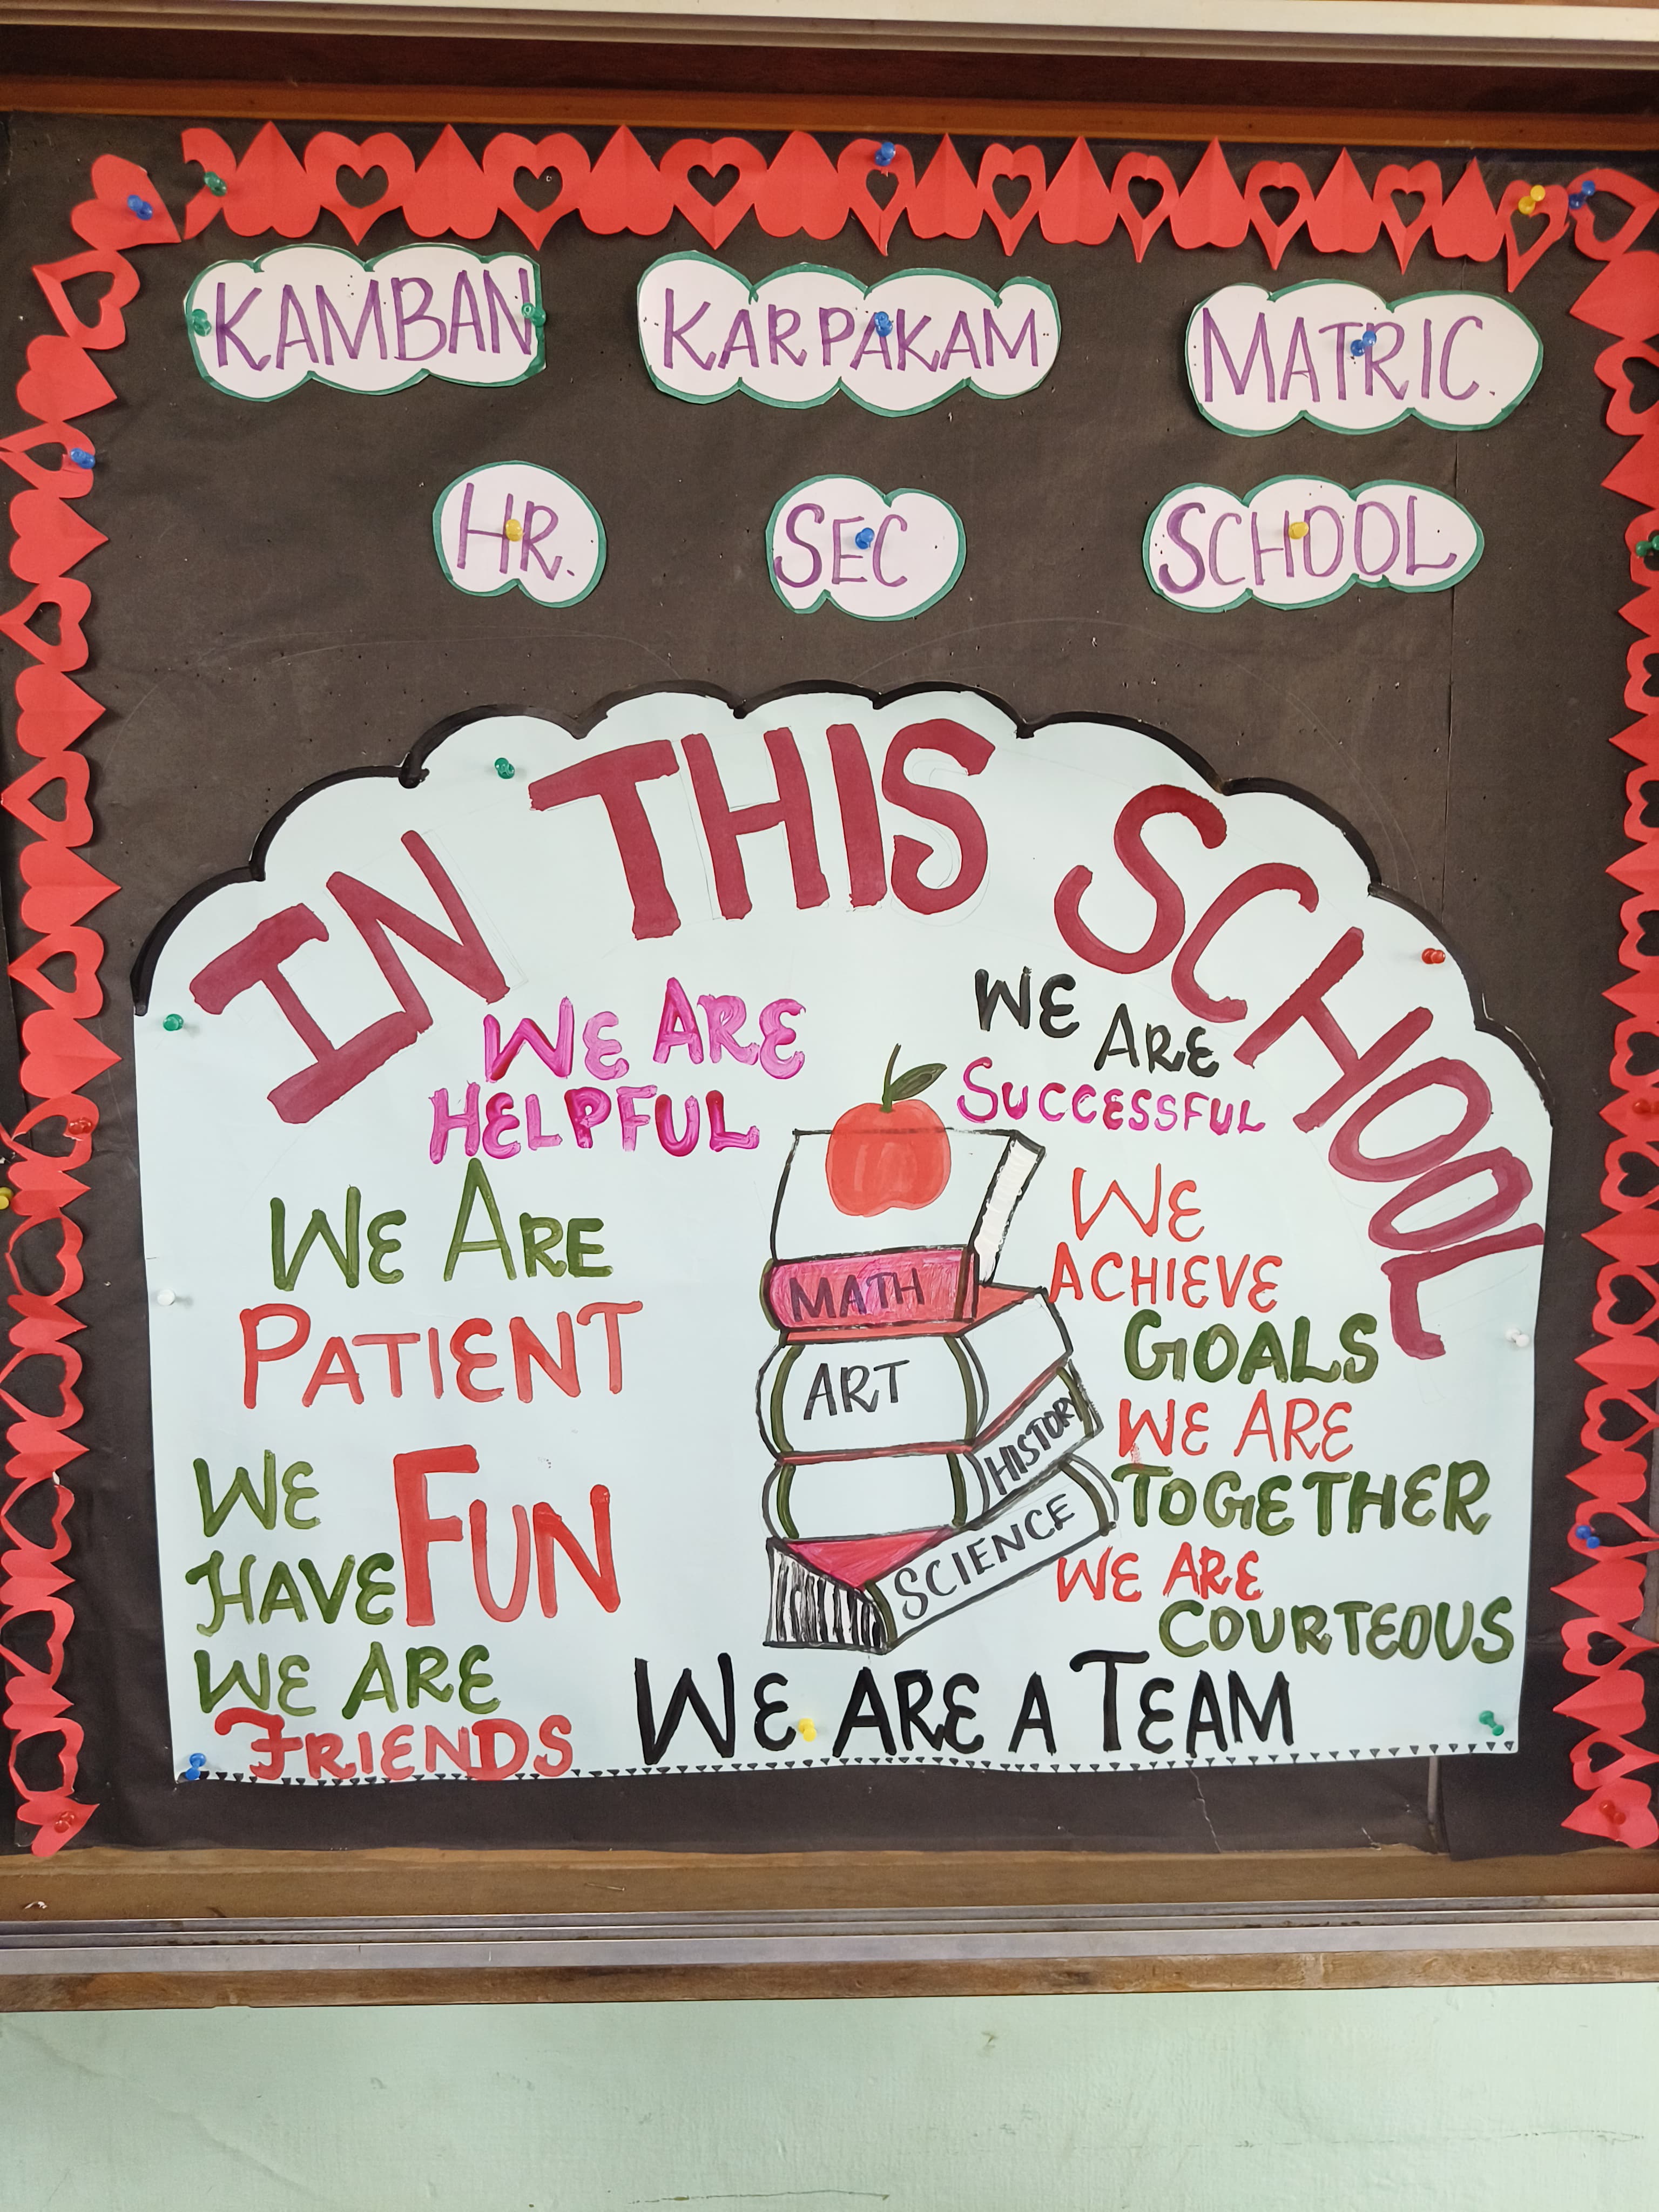 KAMBAN KARPAKAM MATRIC.
HR. SEC SCHOOL
IN THIS SCHOOL
WE ARE
HELPFUL
WE ARE
PATIENT
WE
HAVE FUN
WE ARE
FRIENDS
WE
ARE
SUCCESSFUL
WE
ACHIEVE
GOALS
WE ARE
TOGETHER
WE ARE
COURTEOUS
MATH
ART
HISTORY
SCIENCE
WE ARE A TEAM